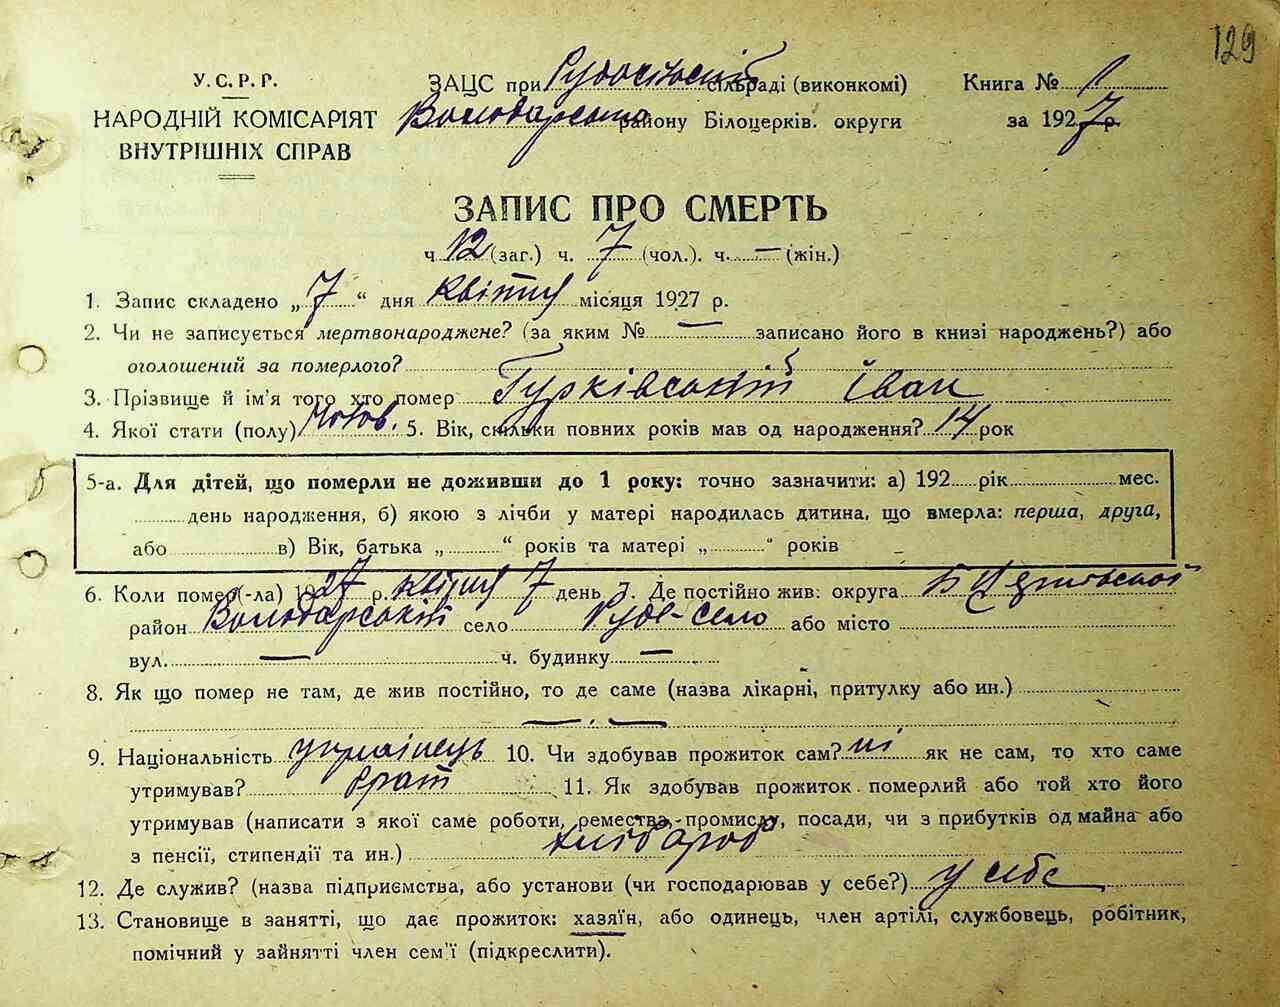 129
У.С.Р.Р.
НАРОДНІЙ КОМІСАРІЯТ
ВНУТРІШНІХ СПРАВ
ЗАЦС при Рудосільській сільраді (виконкомі)
Володарського району Білоцерків. округи
Книга № 1
за 1927 р.
ЗАПИС ПРО СМЕРТЬ
ч 12 (заг.) ч. 7 (чол.). ч. — (жін.)
1. Запис складено „ 7 “ дня квітня місяця 1927 р.
2. Чи не записується мертвонароджене? (за яким № — записано його в книзі народжень?) або
оголошений за померлого?
3. Прізвище й ім'я того хто помер Гурківський Іван
4. Якої стати (полу) Чолов. 5. Вік, скільки повних років мав од народження? 14 рок
5-а. Для дітей, що померли не доживши до 1 року: точно зазначити: а) 192 рік мес.
день народження, б) якою з лічби у матері народилась дитина, що вмерла: перша, друга,
або в) Вік, батька „ “ років та матері „ “ років
6. Коли помер(-ла) 1927 р. квітня 7 день 7. Де постійно жив: округа Б Церківської
район Володарський село Руде-Село або місто
вул. — ч. будинку —
8. Як що помер не там, де жив постійно, то де саме (назва лікарні, притулку або ин.)
— . —
9. Національність українець 10. Чи здобував прожиток сам? ні як не сам, то хто саме
утримував? брат 11. Як здобував прожиток померлий або той хто його
утримував (написати з якої саме роботи, ремества, промислу, посади, чи з прибутків од майна або
з пенсії, стипендії та ин.) хлібороб
12. Де служив? (назва підприємства, або установи (чи господарював у себе?) у себе
13. Становище в занятті, що дає прожиток: хазяїн, або одинець, член артілі, службовець, робітник,
помічний у зайнятті член сем'ї (підкреслити).